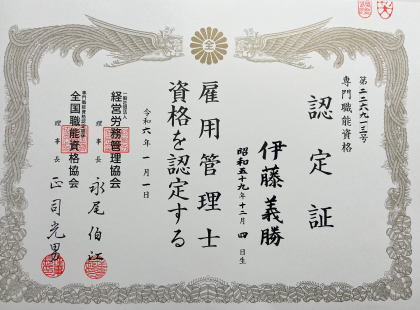 第二二六九一三号
専門職能資格
認定証
伊藤義勝
昭和五十九年十二月四日生
雇用管理士
資格を認定する
令和六年一月一日
一般社団法人
経営労務管理協会
理事長 永尾伯江
全国職能資格協会
理事長 正司光男